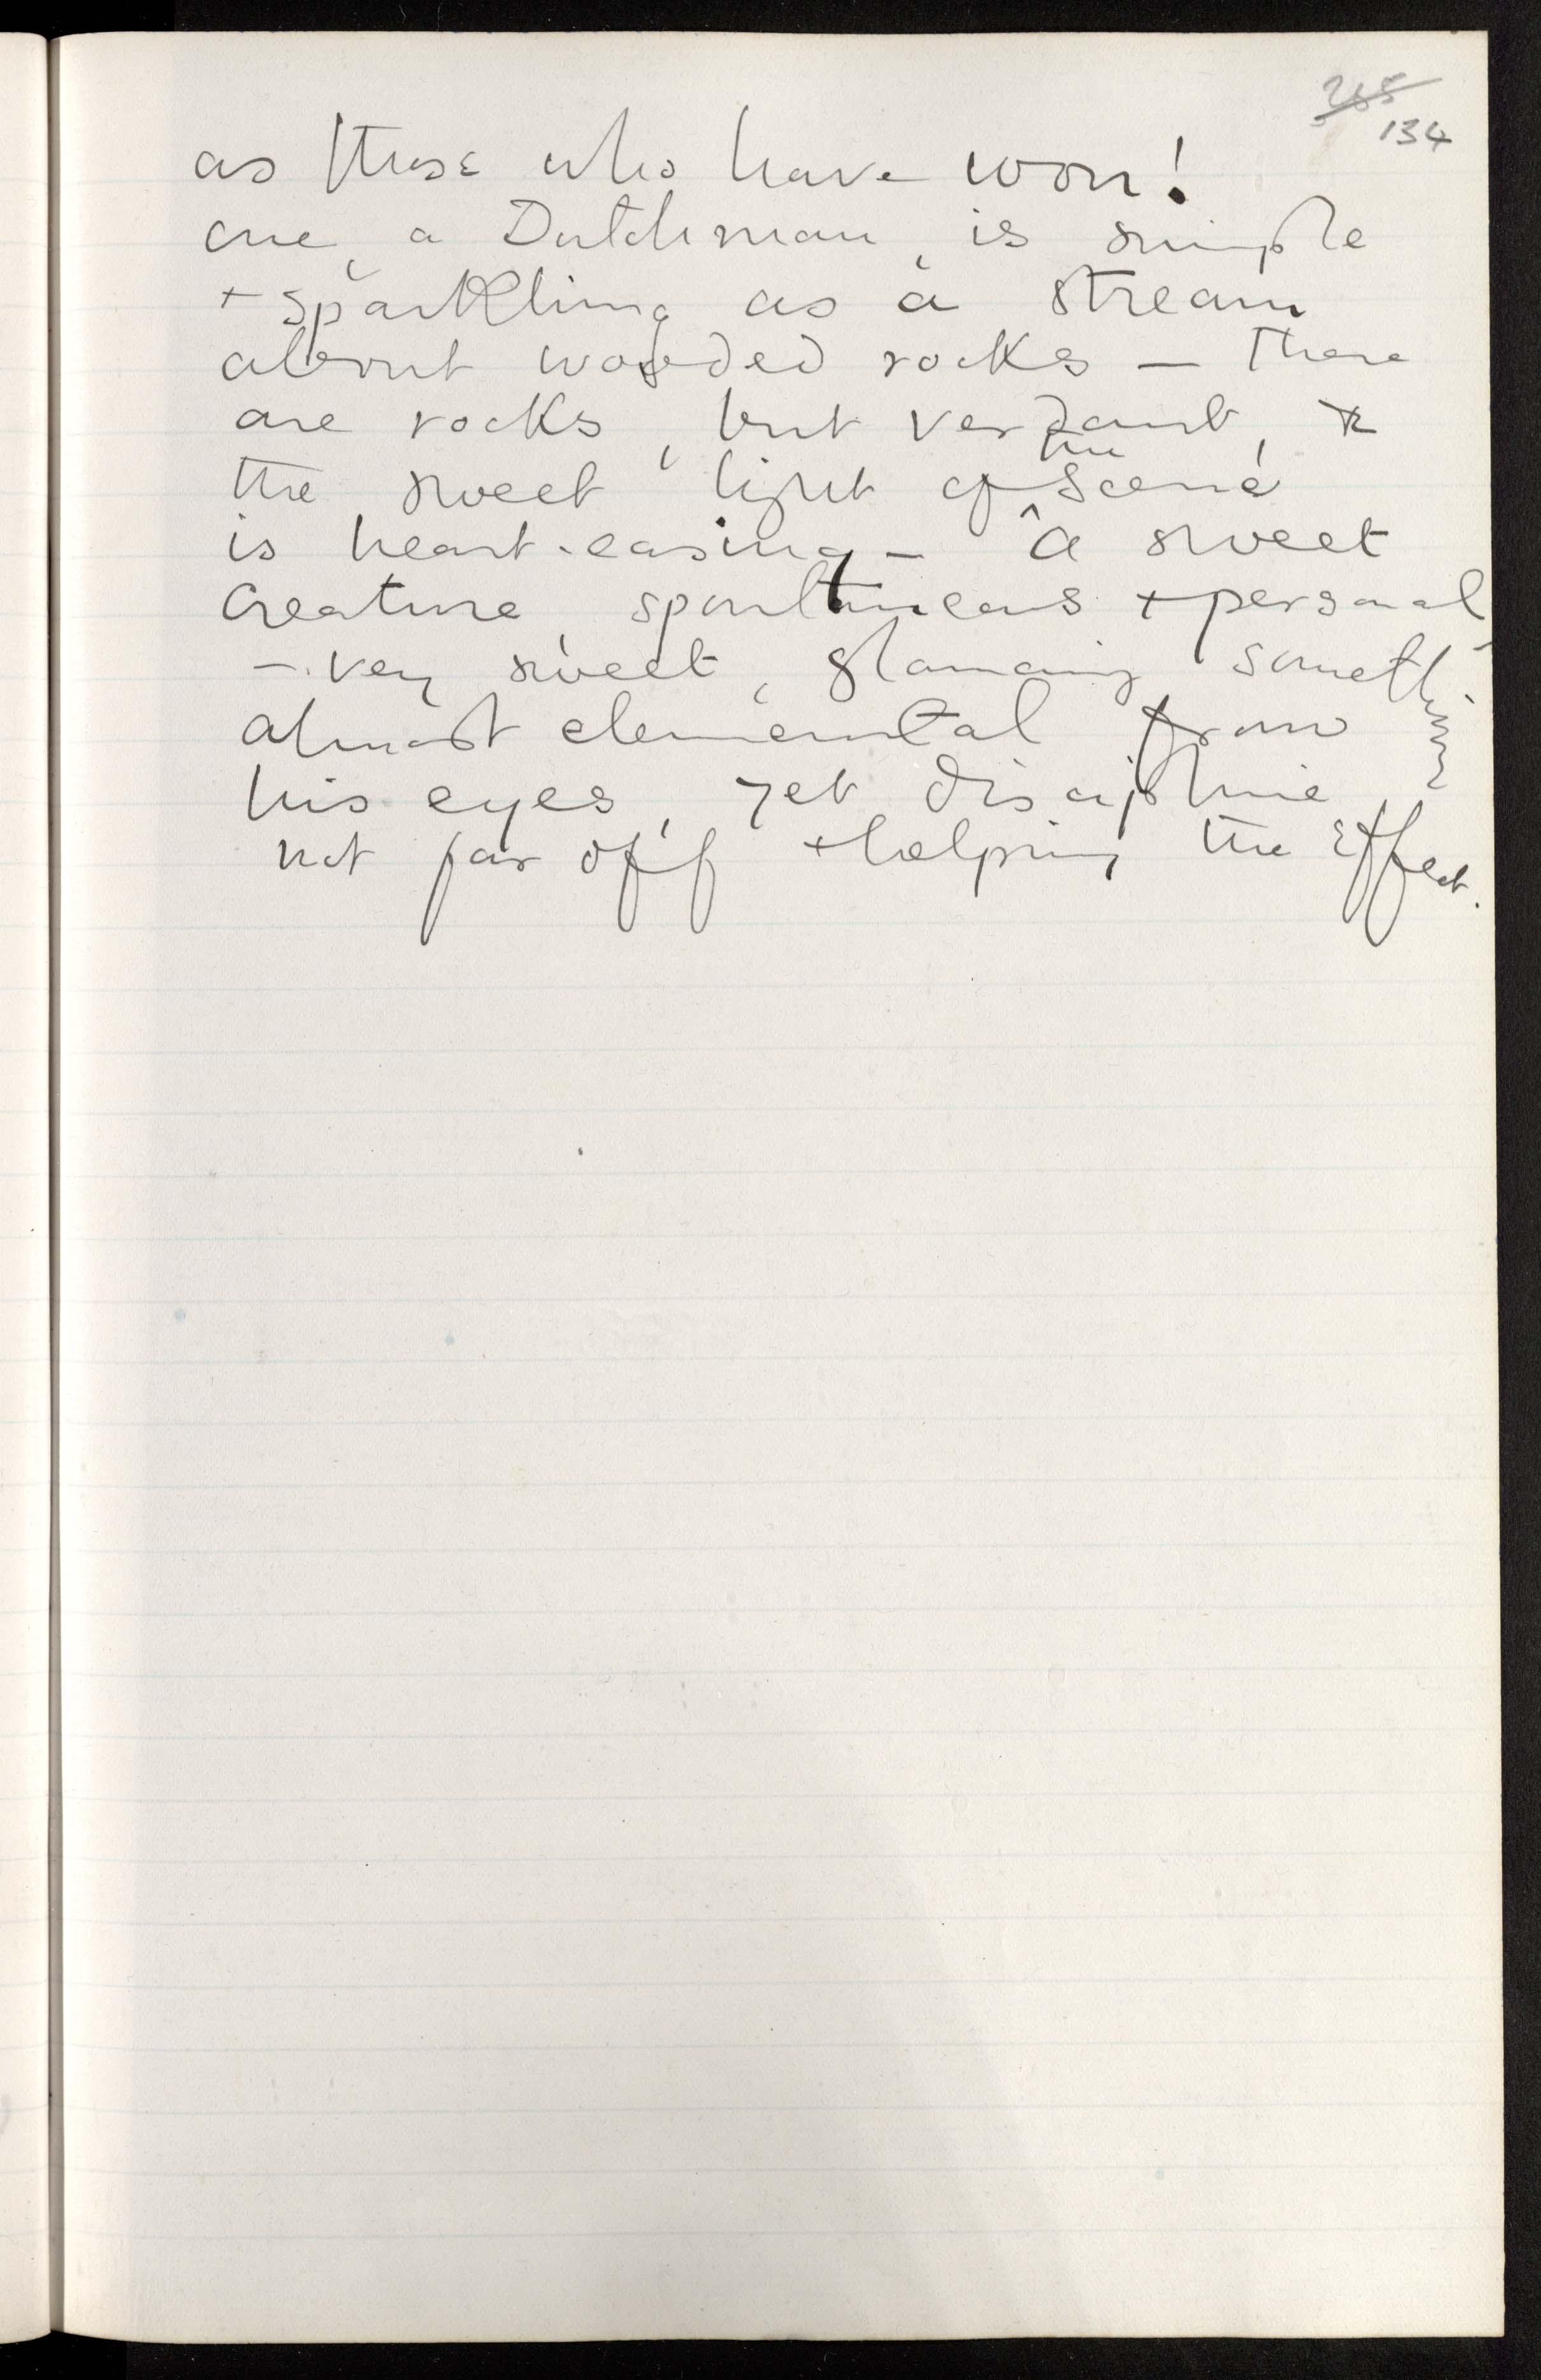 265
134
as those who have won!
one, a Dutchman, is simple
+ sparkling as a stream
about wooded rocks – there
are rocks, but verdant, &
the sweet light of the scene
is heart-easing – a sweet
creature, spontaneous + personal
– very sweet, glancing something
almost elemental from
his eyes, yet discipline
not far off + helping the effect.